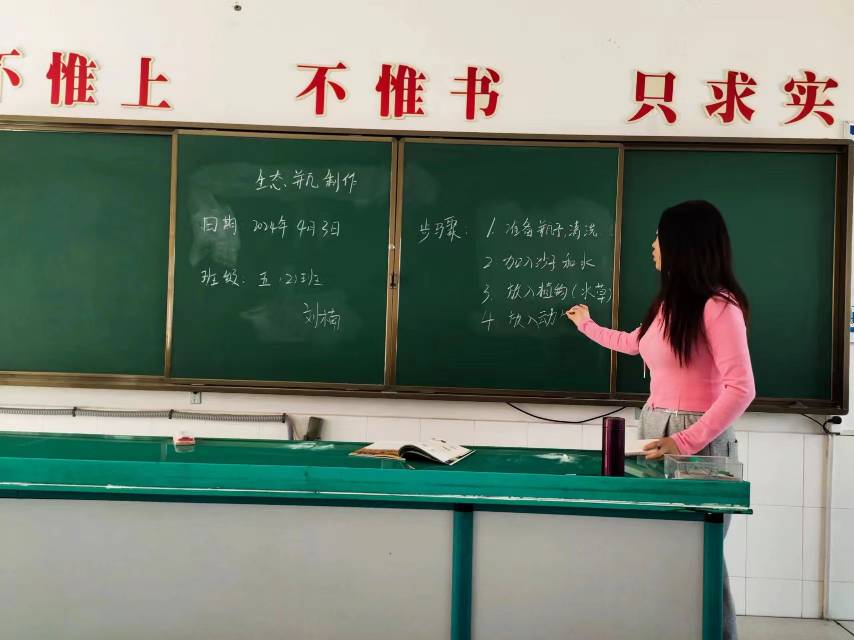 不惟上 不惟书 只求实
生态瓶制作
日期 2024年4月3日
班级：五（2）班
刘楠
步骤：1. 准备瓶子，清洗
2 加入沙子和水
3. 放入植物（水草）
4 放入动